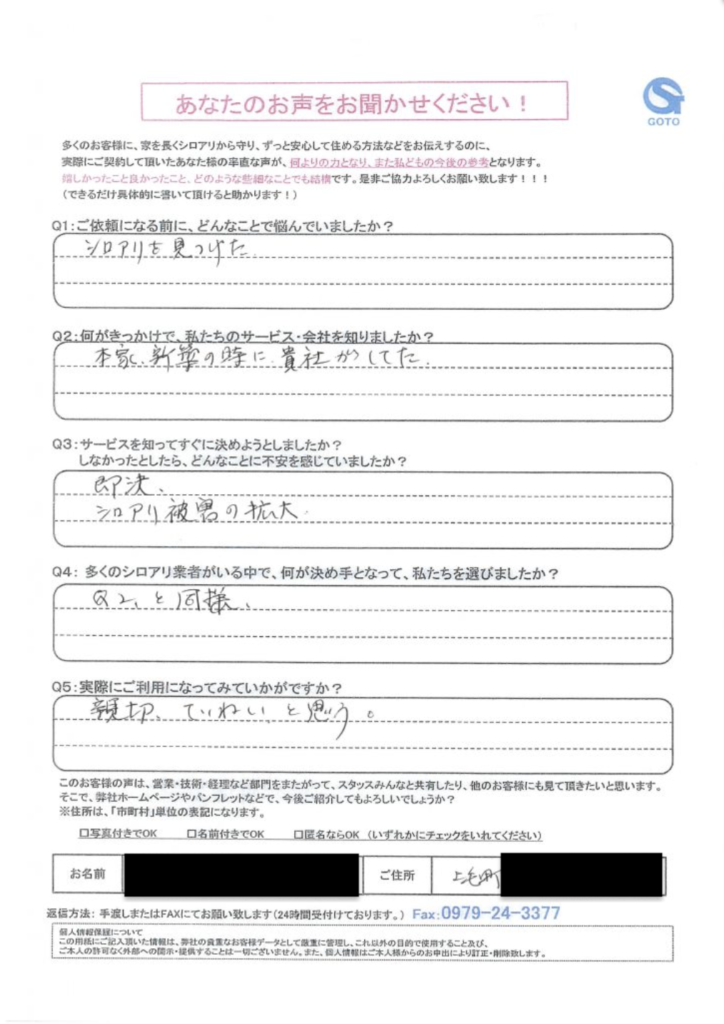 あなたのお声をお聞かせください！
GOTO
多くのお客様に、家を長くシロアリから守り、ずっと安心して住める方法などをお伝えするのに、
実際にご契約して頂いたあなた様の率直な声が、何よりの力となり、また私どもの今後の参考となります。
嬉しかったこと良かったこと、どのような些細なことでも結構です。是非ご協力よろしくお願い致します！！！
（できるだけ具体的に書いて頂けると助かります！）
Q1：ご依頼になる前に、どんなことで悩んでいましたか？
シロアリを見つけた
Q2：何がきっかけで、私たちのサービス・会社を知りましたか？
本家、新築の時に、貴社がしてた。
Q3：サービスを知ってすぐに決めようとしましたか？
しなかったとしたら、どんなことに不安を感じていましたか？
即決、
シロアリ被害の拡大
Q4： 多くのシロアリ業者がいる中で、何が決め手となって、私たちを選びましたか？
Q2、と同様、
Q5：実際にご利用になってみていかがですか？
親切、ていねい、と思う。
このお客様の声は、営業・技術・経理など部門をまたがって、スタッスみんなと共有したり、他のお客様にも見て頂きたいと思います。
そこで、弊社ホームページやパンフレットなどで、今後ご紹介してもよろしいでしょうか？
※住所は、「市町村」単位の表記になります。
□写真付きでOK □名前付きでOK □匿名ならOK （いずれかにチェックをいれてください）
お名前 ご住所 上毛町
返信方法： 手渡しまたはFAXにてお願い致します（24時間受付けております。） Fax：0979-24-3377
個人情報保護について
この用紙にご記入頂いた情報は、弊社の貴重なお客様データとして厳重に管理し、これ以外の目的で使用すること及び、
ご本人の許可なく外部への開示・提供することは一切ございません。また、個人情報はご本人様からのお申出により訂正・削除致します。